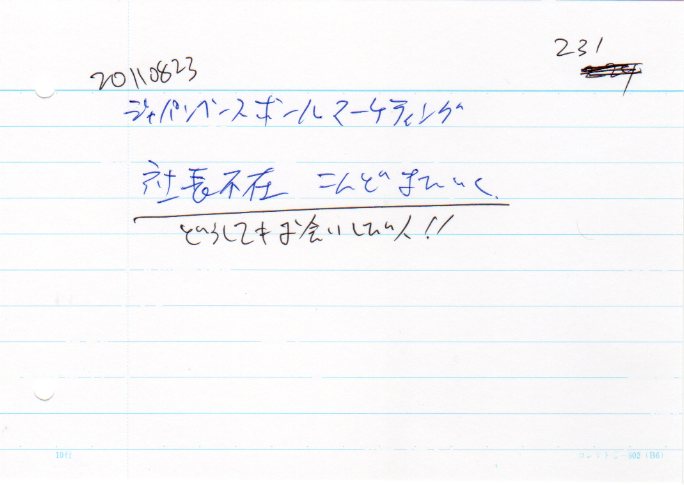 231
20110823
ジャパンベースボールマーケティング
社長不在 こんどまたいく.
どうしてもお会いしたい人!!